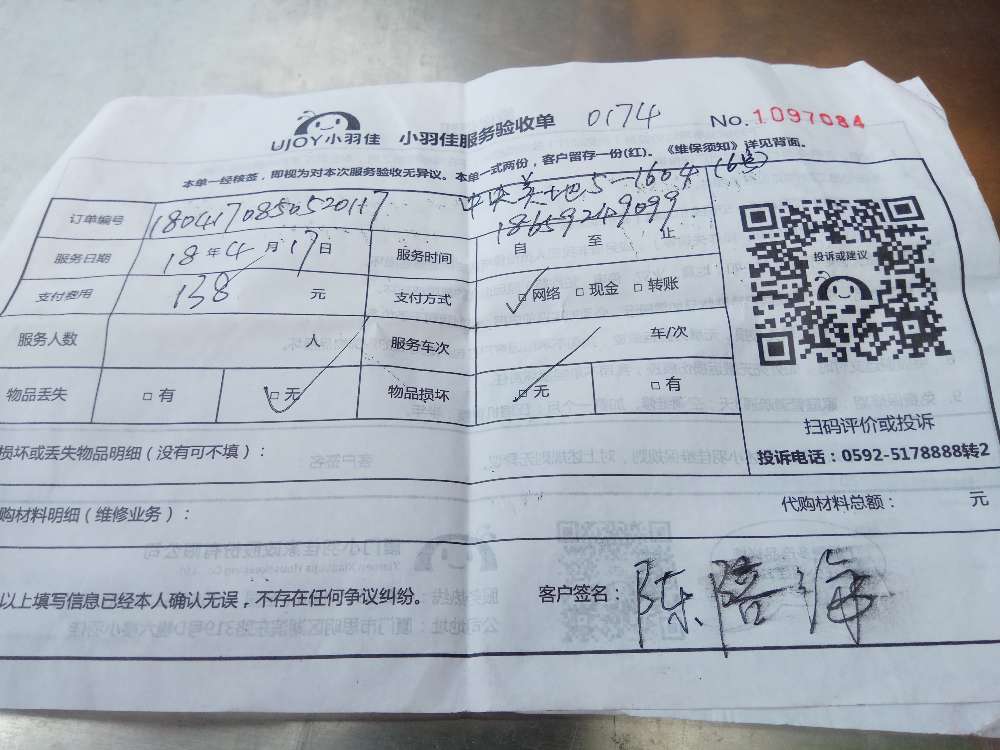 UJOY小羽佳 小羽佳服务验收单 0174 No.1097084
本单一经核签，即视为对本次服务验收无异议。本单一式两份，客户留存一份(红)。《维保须知》详见背面。
订单编号 18659249099
服务日期 18年4月17日 服务时间 自 至 止
支付费用 138 元 支付方式 □网络 □现金 □转账
服务人数 人 服务车次 车/次
物品丢失 □有 □无 物品损坏 □无 □有
投诉或建议
扫码评价或投诉
投诉电话：0592-5178888转2
损坏或丢失物品明细（没有可不填）：
购材料明细（维修业务）： 代购材料总额： 元
以上填写信息已经本人确认无误，不存在任何争议纠纷。 客户签名：陈